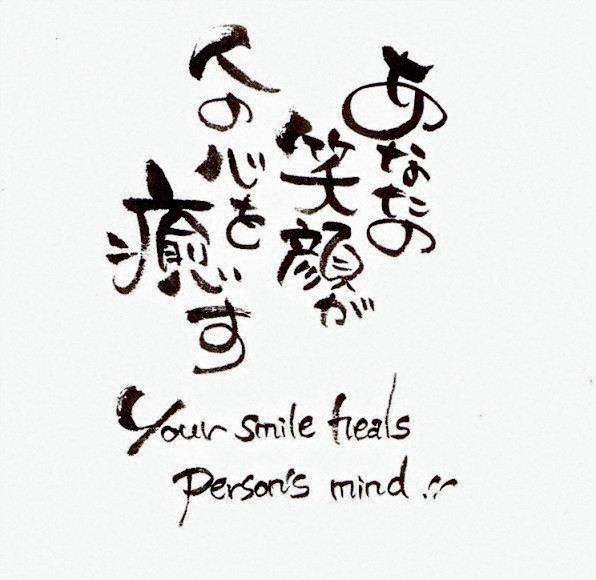 あなたの
笑顔が
人の心を
癒す
Your smile heals
Person's mind..